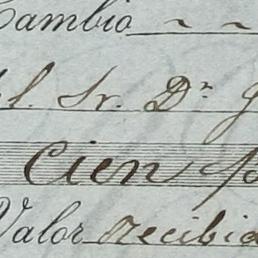 Cambio
Sr. Dn
Cien
Valor recibid